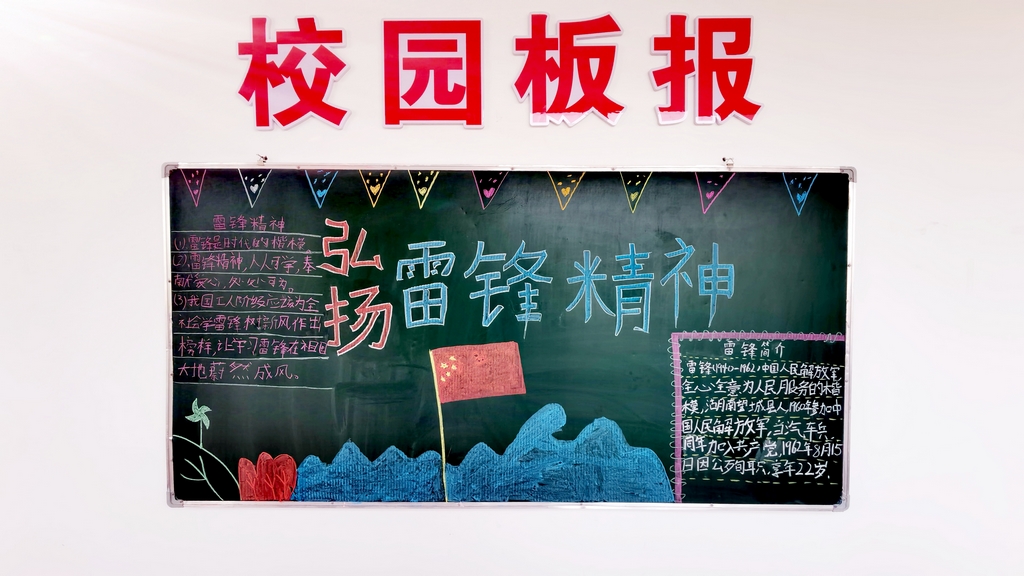 校园板报
弘扬
雷锋精神
雷锋精神
(1)雷锋是时代的楷模。
(2)雷锋精神,人人可学;奉
献爱心,处处可为。
(3)我国工人阶级应该为全
社会学雷锋树新风作出
榜样,让学习雷锋在祖国
大地蔚然成风。
雷锋简介
雷锋(1940-1962)中国人民解放军
全心全意为人民服务的楷
模,湖南望城县人,1960年参加中
国人民解放军,当汽车兵
同年加入共产党,1962年8月15
日因公殉职,享年22岁.